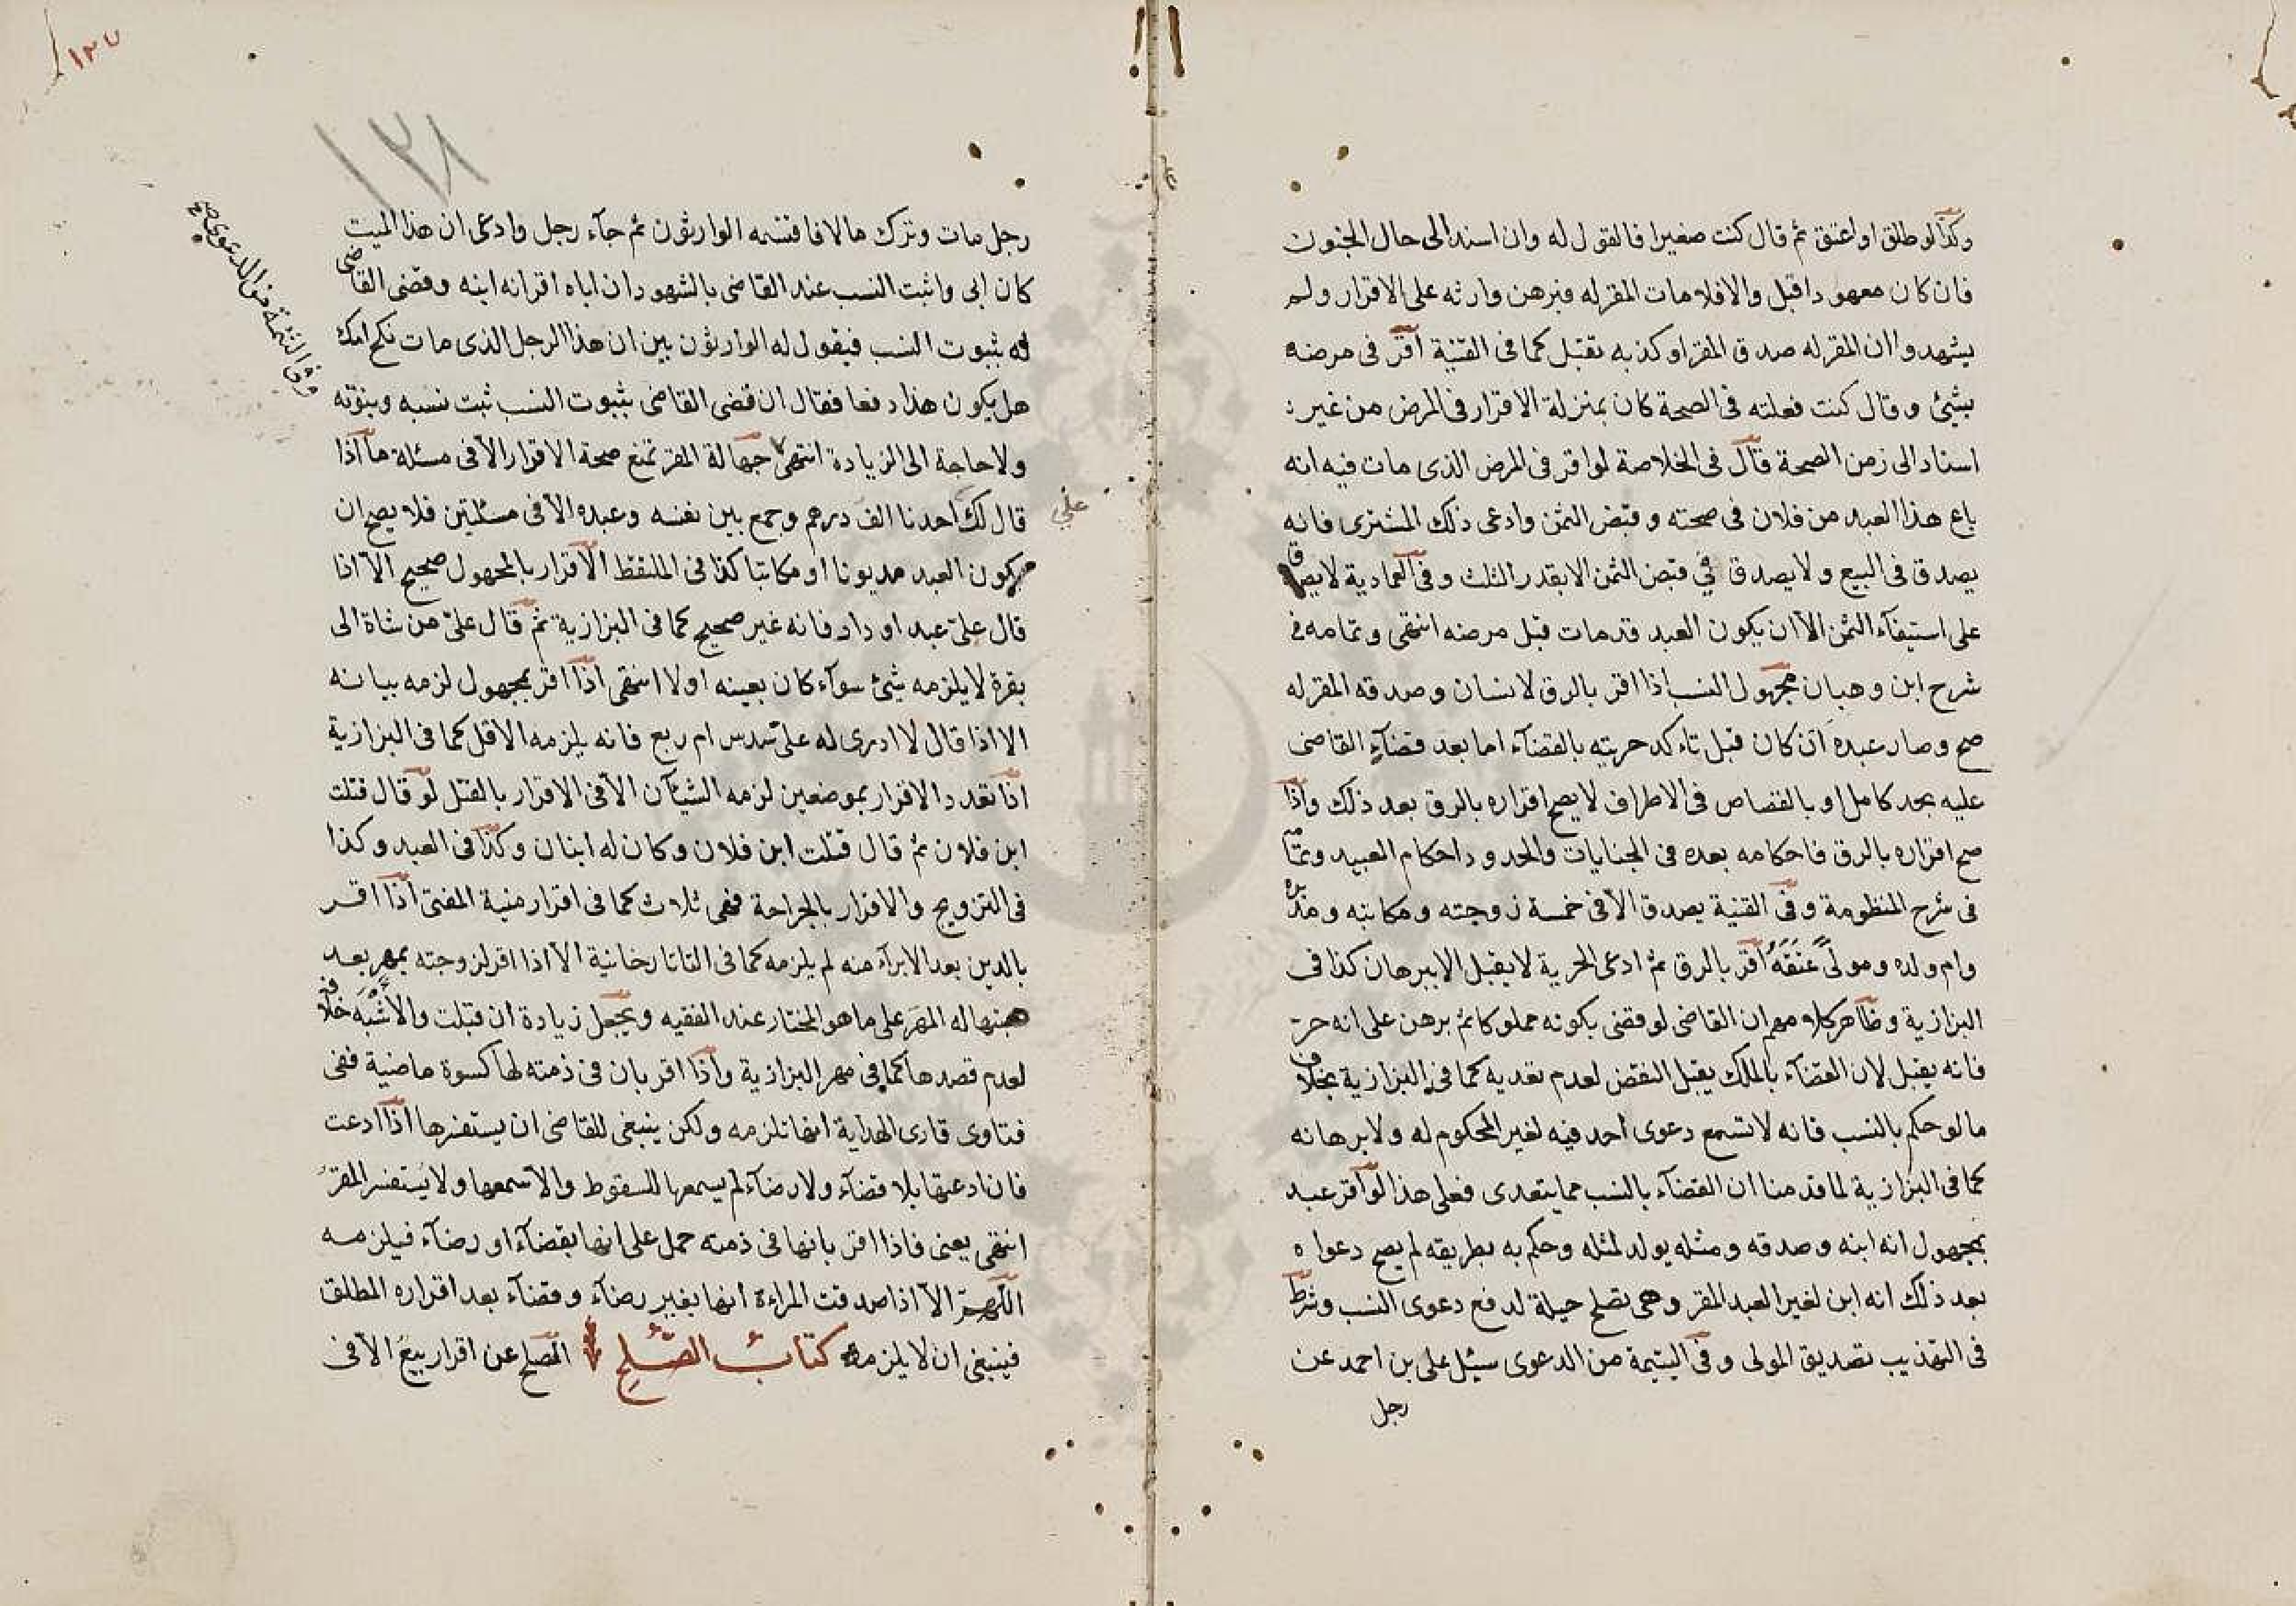 وكذا لو طلق او اعتق ثم قال كنت صغيرا فالقول له وان اسند الى حال الجنون
فان كان معهودا قبل والا فلا مات المقر له فبرهن وارثه على الاقرار ولم
يشهدوا ان المقر له صدق المقر او كذبه تقبل كما فى القنية اقر فى مرضه
بشئ وقال كنت فعلته فى الصحة كان بمنزلة الاقرار فى المرض من غير
اسناد الى زمن الصحة قال فى الخلاصة لو اقر فى المرض الذى مات فيه انه
باع هذا العبد من فلان فى صحته وقبض الثمن وادعى ذلك المشترى فانه
يصدق فى البيع ولا يصدق فى قبض الثمن الا بقدر الثلث وفى العمادية لا يصدق
على استيفآء الثمن الا ان يكون العبد قد مات قبل مرضه انتهى وتمامه فى
شرح ابن وهبان مجهول النسب اذا اقر بالرق لانسان وصدقه المقر له
صح وصار عبده ان كان قبل تاكد حريته بالقضآء اما بعد قضآء القاضى
عليه بحد كامل او بالقصاص فى الاطراف لا يصح اقراره بالرق بعد ذلك واذا
صح اقراره بالرق فاحكامه بعده فى الجنايات والحدود احكام العبيد وتمامه
فى شرح المنظومة وفى القنية يصدق الا فى خمسة زوجته ومكاتبه ومدبره
وام ولده ومولى عتقه اقر بالرق ثم ادعى الحرية لا يقبل الا ببرهان كذا فى
البزازية وظاهر كلامهم ان القاضى لو قضى بكونه مملوكا ثم برهن على انه حر
فانه يقبل لان القضآء بالملك يقبل النقض لعدم تعديه كما فى البزازية بخلاف
ما لو حكم بالنسب فانه لا تسمع دعوى احد فيه لغير المحكوم له ولا برهانه
كما فى البزازية لما قدمنا ان القضآء بالنسب مما يتعدى فعلى هذا لو اقر عبد
بمجهول انه ابنه وصدقه ومثله يولد لمثله وحكم به بطريقه لم يصح دعواه
بعد ذلك انه ابن لغير العبد المقر وهى تصلح حيلة لدفع دعوى النسب وشرط
فى التهذيب تصديق المولى وفى اليتيمة من الدعوى سئل على بن احمد عن
رجل
رجل مات وترك مالا فاقتسمه الوارثون ثم جآء رجل وادعى ان هذا الميت
كان ابى واثبت النسب عند القاضى بالشهود ان اباه اقر انه ابنه وقضى القاضى
له بثبوت النسب فيقول له الوارثون بين ان هذا الرجل الذى مات نكح امك
هل يكون هذا دفعا فقال ان قضى القاضى بثبوت النسب ثبت نسبه وبنوته
ولا حاجة الى الزيادة انتهى جهالة المقر تمنع صحة الاقرار الا فى مسئلة ما اذا
قال لك احدنا الف درهم وجمع بين نفسه وعبده الا فى مسئلتين فلا يصح ان
يكون العبد مديونا او مكاتبا كذا فى الملتقط الاقرار بالمجهول صحيح الا اذا
قال على عبد او دار فانه غير صحيح كما فى البزازية ثم قال على من شاة الى
بقرة لا يلزمه شئ سوآء كان بعينه او لا انتهى اذا اقر بمجهول لزمه بيانه
الا اذا قال لا ادرى له على سدس ام ربع فانه يلزمه الاقل كما فى البزازية
اذا تعدد الاقرار بموضعين لزمه الشيآن الا فى الاقرار بالقتل لو قال قتلت
ابن فلان ثم قال قتلت ابن فلان وكان له ابنان وكذا فى العبد وكذا
فى التزويج والاقرار بالجراحة فهى ثلاث كما فى اقرار منية المفتى اذا اقر
بالدين بعد الابرآء منه لم يلزمه كما فى التاتارخانية الا اذا اقر لزوجته بمهر بعد
هبتها له المهر على ما هو المختار عند الفقيه ويجعل زيادة ان قبلت والاشبه خلافه
لعدم قصدها كما فى مهر البزازية واذا اقر بان فى ذمته لها كسوة ماضية ففى
فتاوى قارى الهداية انها تلزمه ولكن ينبغى للقاضى ان يستفسرها اذا ادعت
فان ادعتها بلا قضآء ولا رضآء لم يسمعها للسقوط والا سمعها ولا يستفسر المقر
انتهى يعنى فاذا اقر بانها فى ذمته حمل على انها بقضآء او رضآء فيلزمه
الا اذا صدقت المراءة انها بغير رضآء وقضآء بعد اقراره المطلق
فينبغى ان لا يلزمه كتاب الصلح الصلح عن اقرار بيع الا فى
وفى التتمة من الدعوى صح
على
١٢٨
١٢٧